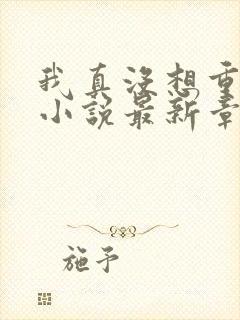 我真没想重
小说最新章
施予